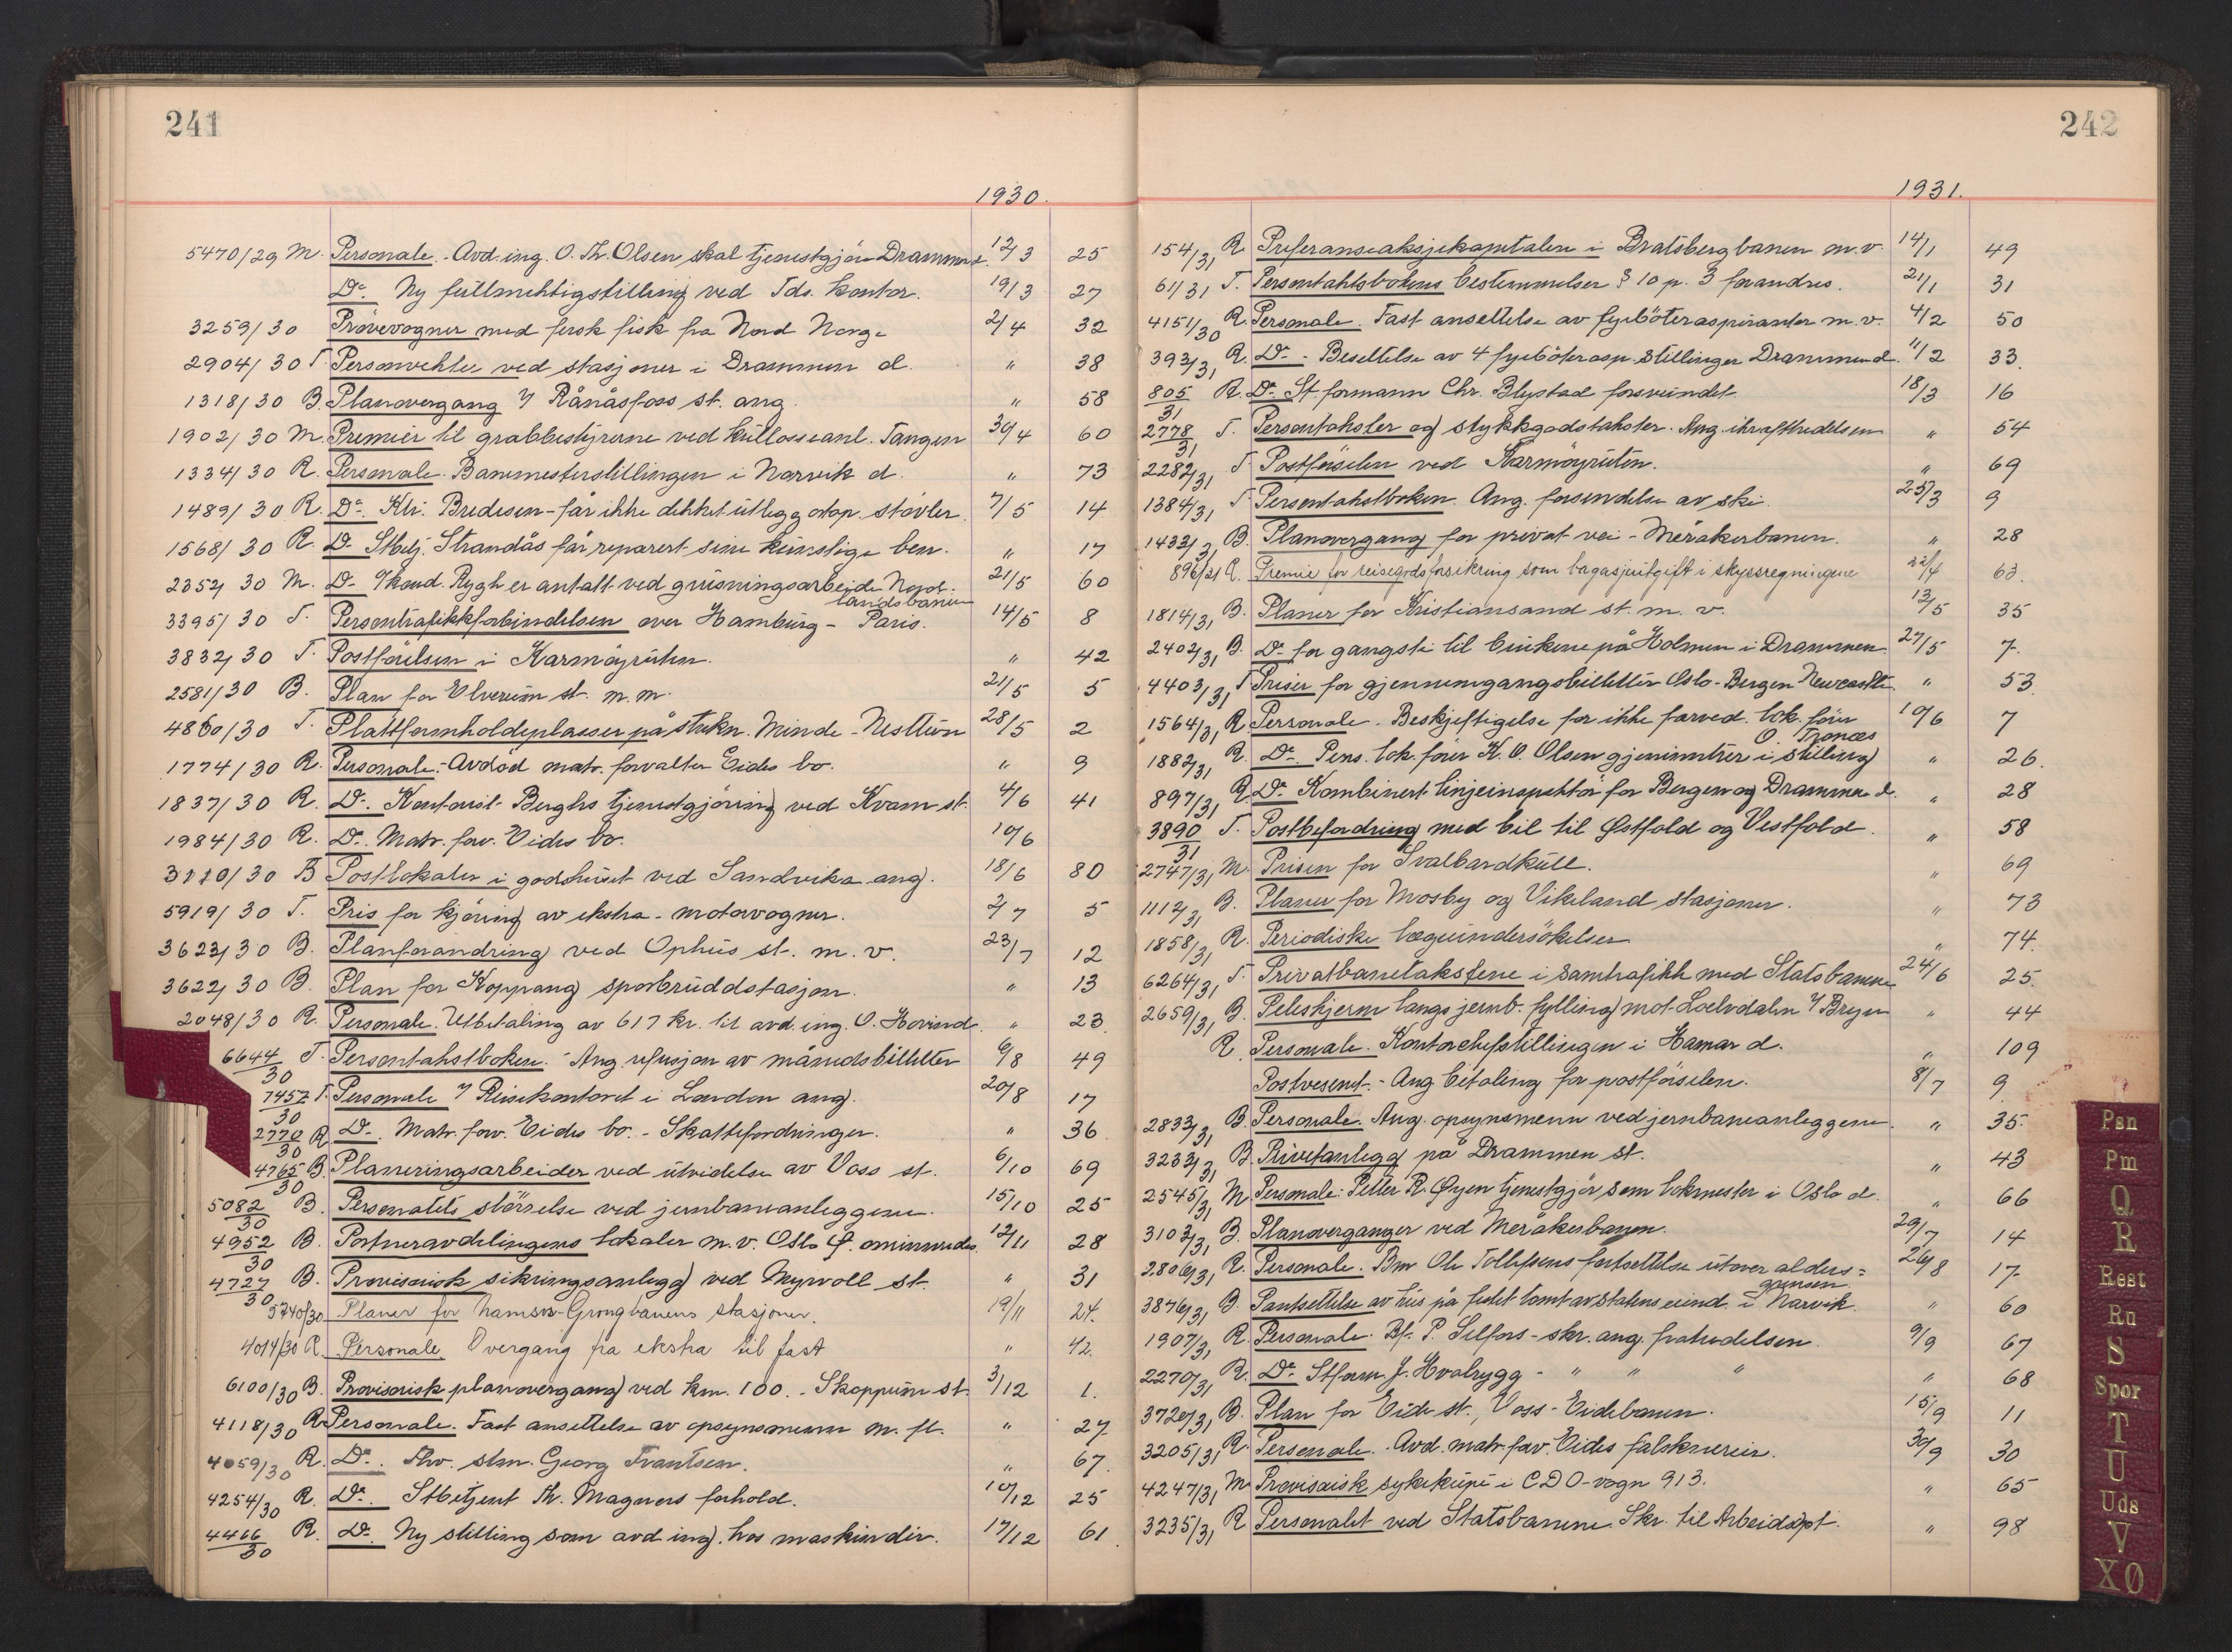 241
1930.
5470/29 M. Personale. - Avd.ing. O. Th. Olsen skal tjenestgjöre Drammen d. 12/3 25
Do. Ny fullmektigstilling ved Tds. kontor. 19/3 27
3259/30 Prövevogner med fersk fisk fra Nord Norge 2/4 32
2904/30 T. Personvekter ved stasjoner i Drammen d. " 38
1318/30 B. Planovergang v/ Rånåsfoss st. ang. " 58
1902/30 M. Premier til grabbestyrerne ved kullosseanl. Tangen 30/4 60
1334/30 R. Personale. Banemesterstillingen i Narvik d. " 73
1489/30 R. Do. Ktr. Bredesen - får ikke dekket utlegg stövler. 7/5 14
1568/30 R. Do. Stbtj. Strandås får reparert sine kunstige ben. " 17
2352/30 M. Do. Rygh er antatt ved grusningsarbeide Nord-
landsbanen 21/5 60
3395/30 T. Persontrafikkforbindelsen over Hamburg - Paris. 14/5 8
3832/30 T. Postförelsen i Karmöyruten. " 42
2581/30 B. Plan for Elverum st. m.m. 21/5 5
4860/30 T. Plattformholdeplasser på strekn. Minde - Nesttun 28/5 2
1774/30 R. Personale. - Avdöd matr. forvalter Eides bo. " 9
1837/30 R. Do. Kontorist Berghs tjenestgjöring ved Kvam st. 4/6 41
1984/30 R. Do. Matr. forv. Eides bo. 10/6
3110/30 B Postlokaler i godshuset ved Sandvika ang. 18/6 80
5919/30 T. Pris for kjöring av ekstra - motorvogner. 2/7 5
3623/30 B. Planforandring ved Ophus st. m. v. 23/7 12
3622/30 B. Plan for Koppang sporbruddstasjon. " 13
2048/30 R. Personale. Utbetaling av 617 kr. til avd. ing. O. Hovind. " 23
6644/30 T. Persontakstboken. Ang. refusjon av månedsbilletter 6/8 49
7457/30 T. Personale v/ Reisekontoret i London ang. 20/8 17
2770/30 R Do. Matr. forv. Eides bo. - Skattefordringer. " 36
4765/30 B. Planeringsarbeider ved utvidelse av Voss st. 6/10 69
5082/30 B. Personalets störrelse ved jernbaneanleggene. 15/10 25
4952/30 B. Portneravdelingens lokaler m.v. Oslo Ø. ominnredes. 12/11 28
4727/30 B. Provisorisk sikringsanlegg ved Myrvoll st. " 31
5740/30 Planer for Namsos-Grongbanens stasjoner. 19/11 24.
4014/30 R. Personale. Overgang fra ekstra til fast " 42.
6100/30 B. Provisorisk planovergang ved km. 100. - Skoppum st. 3/12 1.
4118/30 R. Personale. Fast ansettelse av opsynsmenn m. fl. " 27
4059/30 R. Do. Fhv. stm. Georg Frantsen. " 67.
4254/30 R. Do. Stbetjent Th. Magners forhold. 10/12 25
4466/30 R. Do. Ny stilling som avd ing. hos maskindir. 17/12 61.
242
1931.
154/31 R. Preferanseaksjekapitalen i Bratsbergbanen m.v. 14/1 49
61/31 T. Persontakstbokens bestemmelser § 10 p. 3 forandres. 21/1 31
4151/30 R. Personale. Fast ansettelse av fyrböteraspiranter m.v. 4/2 50
393/31 R. Do. - Besettelse av 4 fyrböterasp. stillinger Drammen d. 11/2 33.
805/31 R. Do. St. formann Chr. Blystad forsvundet 18/3 16
2778/31 T. Persontakster og stykkgodstakster. Ang. ikrafttredelsen " 54
2282/31 T Postförselen ved Karmöyruten. " 69
1384/31 T Persontakstboken. Ang. forsendelse av ski. 25/3 9
1433/31 B. Planovergang for privat vei - Meråkerbanen. " 28
896/31 R. Premie for reisegodsforsikring som bagasjeutgift i skyssregningene 22/4 63.
1814/31 B. Planer for Kristiansand st. m. v. 13/5 35
2402/31 B. Do for gangsti til brukene på Holmen i Drammen. 27/5 7.
4403/31 T Priser for gjennemgangsbilletter Oslo-Bergen Newcastle. " 53.
1564/31 R. Personale. Beskjeftigelse for ikke farved. lok. förer
O. Tronæs 10/6 7
1882/31 R. Do. Pens. lok. förer K. O. Olsen gjeninntrer i stilling " 26.
897/31 R. Do. Kombinert linjeinspektör for Bergen og Drammen d. " 28
3890/31 T. Postbefordring med bil til Østfold og Vestfold. " 58
2747/31 M. Prisen for Svalbardkull. " 69
1112/31 B. Planer for Mosby og Vikeland stasjoner. " 73
1858/31 R. Periodiske lægeundersökelser " 74.
6264/31 T. Privatbanetakstene i samtrafikk med Statsbanene 24/6 25.
2659/31 B. Peleskjerm langs jernb. fylling mot Loelvdalen v/ Bryn " 44
R. Personale. Kontorchefstillingen i Hamar d. " 109
Postvesenet. - Ang. betaling for postförselen. 8/7 9
2833/31 B. Personale. Ang. opsynsmenn ved jernbaneanleggene. " 35.
3233/31 B. Privetanlegg på Drammen st. " 43
2545/31 M Personale: Petter R. Øyen tjenestgjör som lokmester i Oslo d. " 66
3103/31 B. Planoverganger ved Meråkerbanen. 29/7 14
2806/31 R. Personale. Bm Ole Tollefsens fortsettelse utover alders=
grensen. 26/8 17.
3876/31 B. Pantsettelse av hus på festet tomt av statens eiend. i Narvik. " 60
1907/31 R. Personale. Bf. P. Selfors - skr. ang. fratredelsen. 9/9 67
2270/31 R. Do. Stform. J. Hvalrygg - " " " " 68
3720/31 B. Plan for Eide st., Voss - Eidebanen. 15/9 11
3205/31 R. Personale. Avd. matr. forv. Eides falsknerier. 30/9 30
4247/31 M. Provisorisk sykekupé i CDO-vogn 913. " 65
3235/31 R Personalet ved Statsbanene. Skr. til Arbeidsdpt. " 98
Psn
Pm
Q
R
Rest
Ru
S
Spor
T
U
Uds
V
XØ